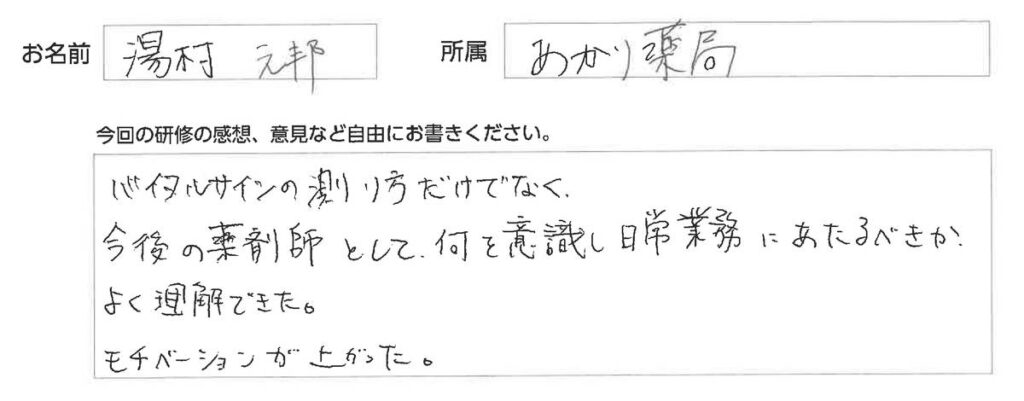 お名前 湯村 元邦 所属 あかり薬局
今回の研修の感想、意見など自由にお書きください。
バイタルサインの測り方だけでなく、
今後の薬剤師として、何を意識し日常業務にあたるべきか、
よく理解できた。
モチベーションが上がった。